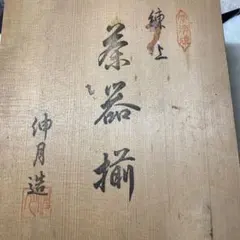 練上
茶器揃
紳月造